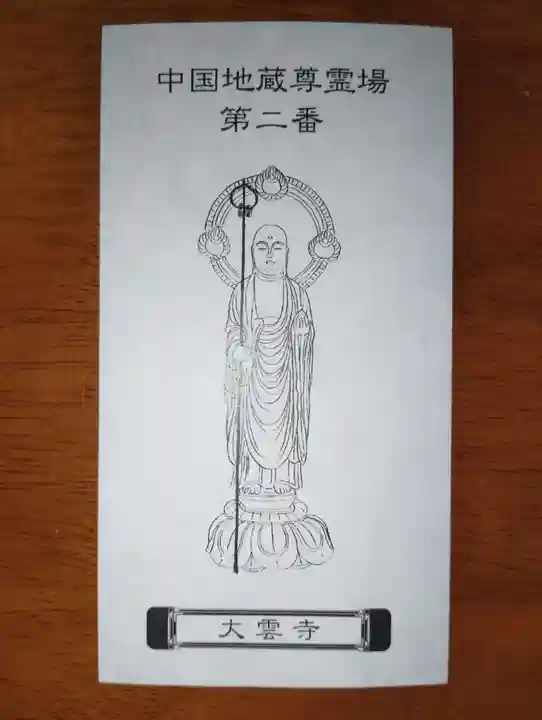 中国地蔵尊霊場
第二番
大雲寺